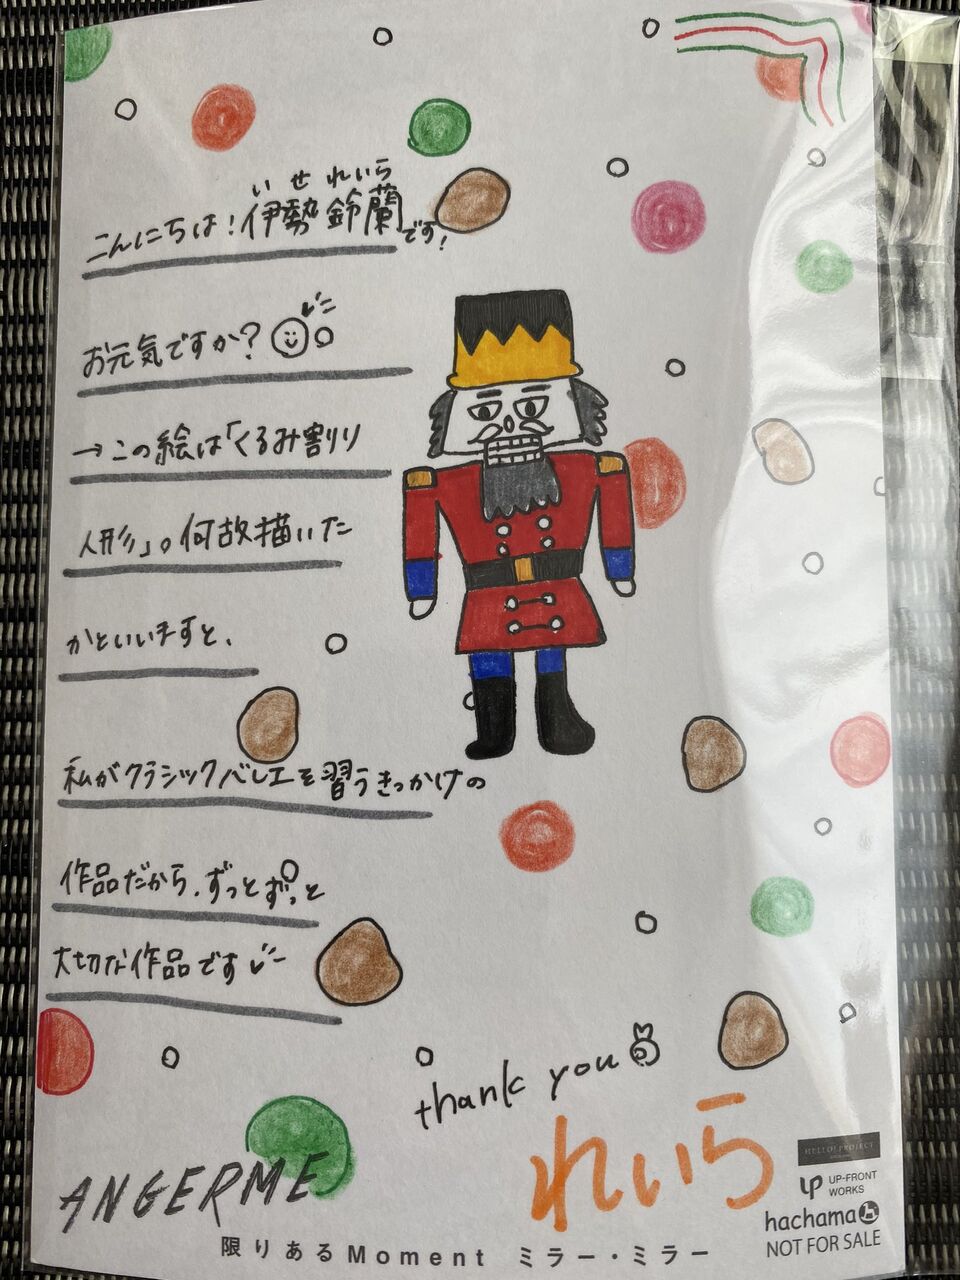 いせ れいら
こんにちは!伊勢鈴蘭です!
お元気ですか?
→この絵は「くるみ割り
人形」。何故描いた
かといいますと、
私がクラシックバレエを習うきっかけの
作品だから、ずっとずっと
大切な作品です
thank you
れいら
ANGERME
HELLO! PROJECT
UP-FRONT
WORKS
hachama
NOT FOR SALE
限りあるMoment ミラー・ミラー